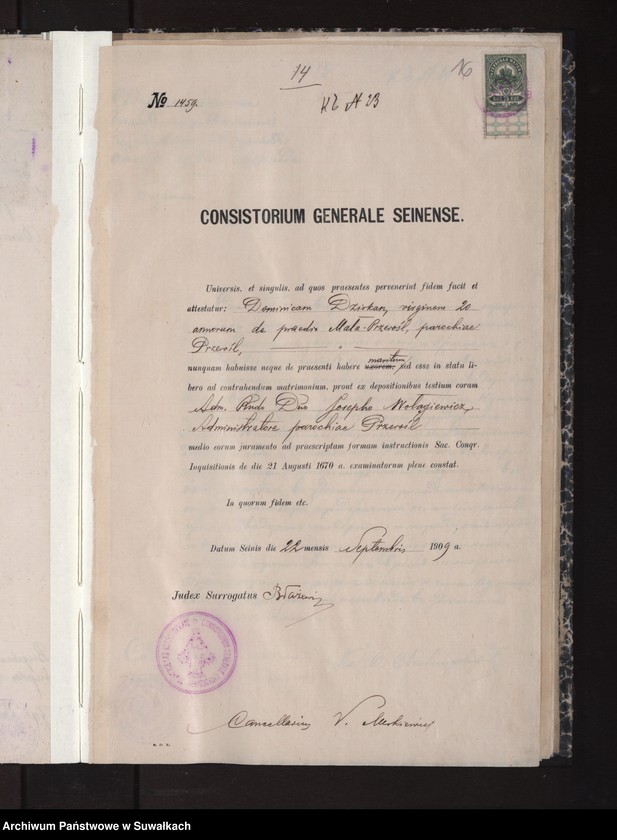 14
16
№ 1459.
CONSISTORIUM GENERALE SEINENSE.
Universis et singulis, ad quos praesentes pervenerint fidem facit et
attestatur: Dominicam Dzirkan, virginem 20
annorum de praedio Mała-Przerośl, parochiae
Przerośl,
maritum
nunquam habuisse neque de praesenti habere uxorem, ed esse in statu li-
bero ad contrahendum matrimonium, prout ex depositionibus testium coram
Adm. Rndo Dno Josepho Wołągiewicz,
Administratore parochiae Przerośl
medio eorum juramento ad praescriptam formam instructionis Sac. Conqr.
Inquisitionis de die 21 Augusti 1670 a. examinatorum plene constat.
In quorum fidem etc.
Datum Seinis die 22 mensis Septembris 1909 a.
Judex Surrogatus
Cancellarius V.
Archiwum Państwowe w Suwałkach